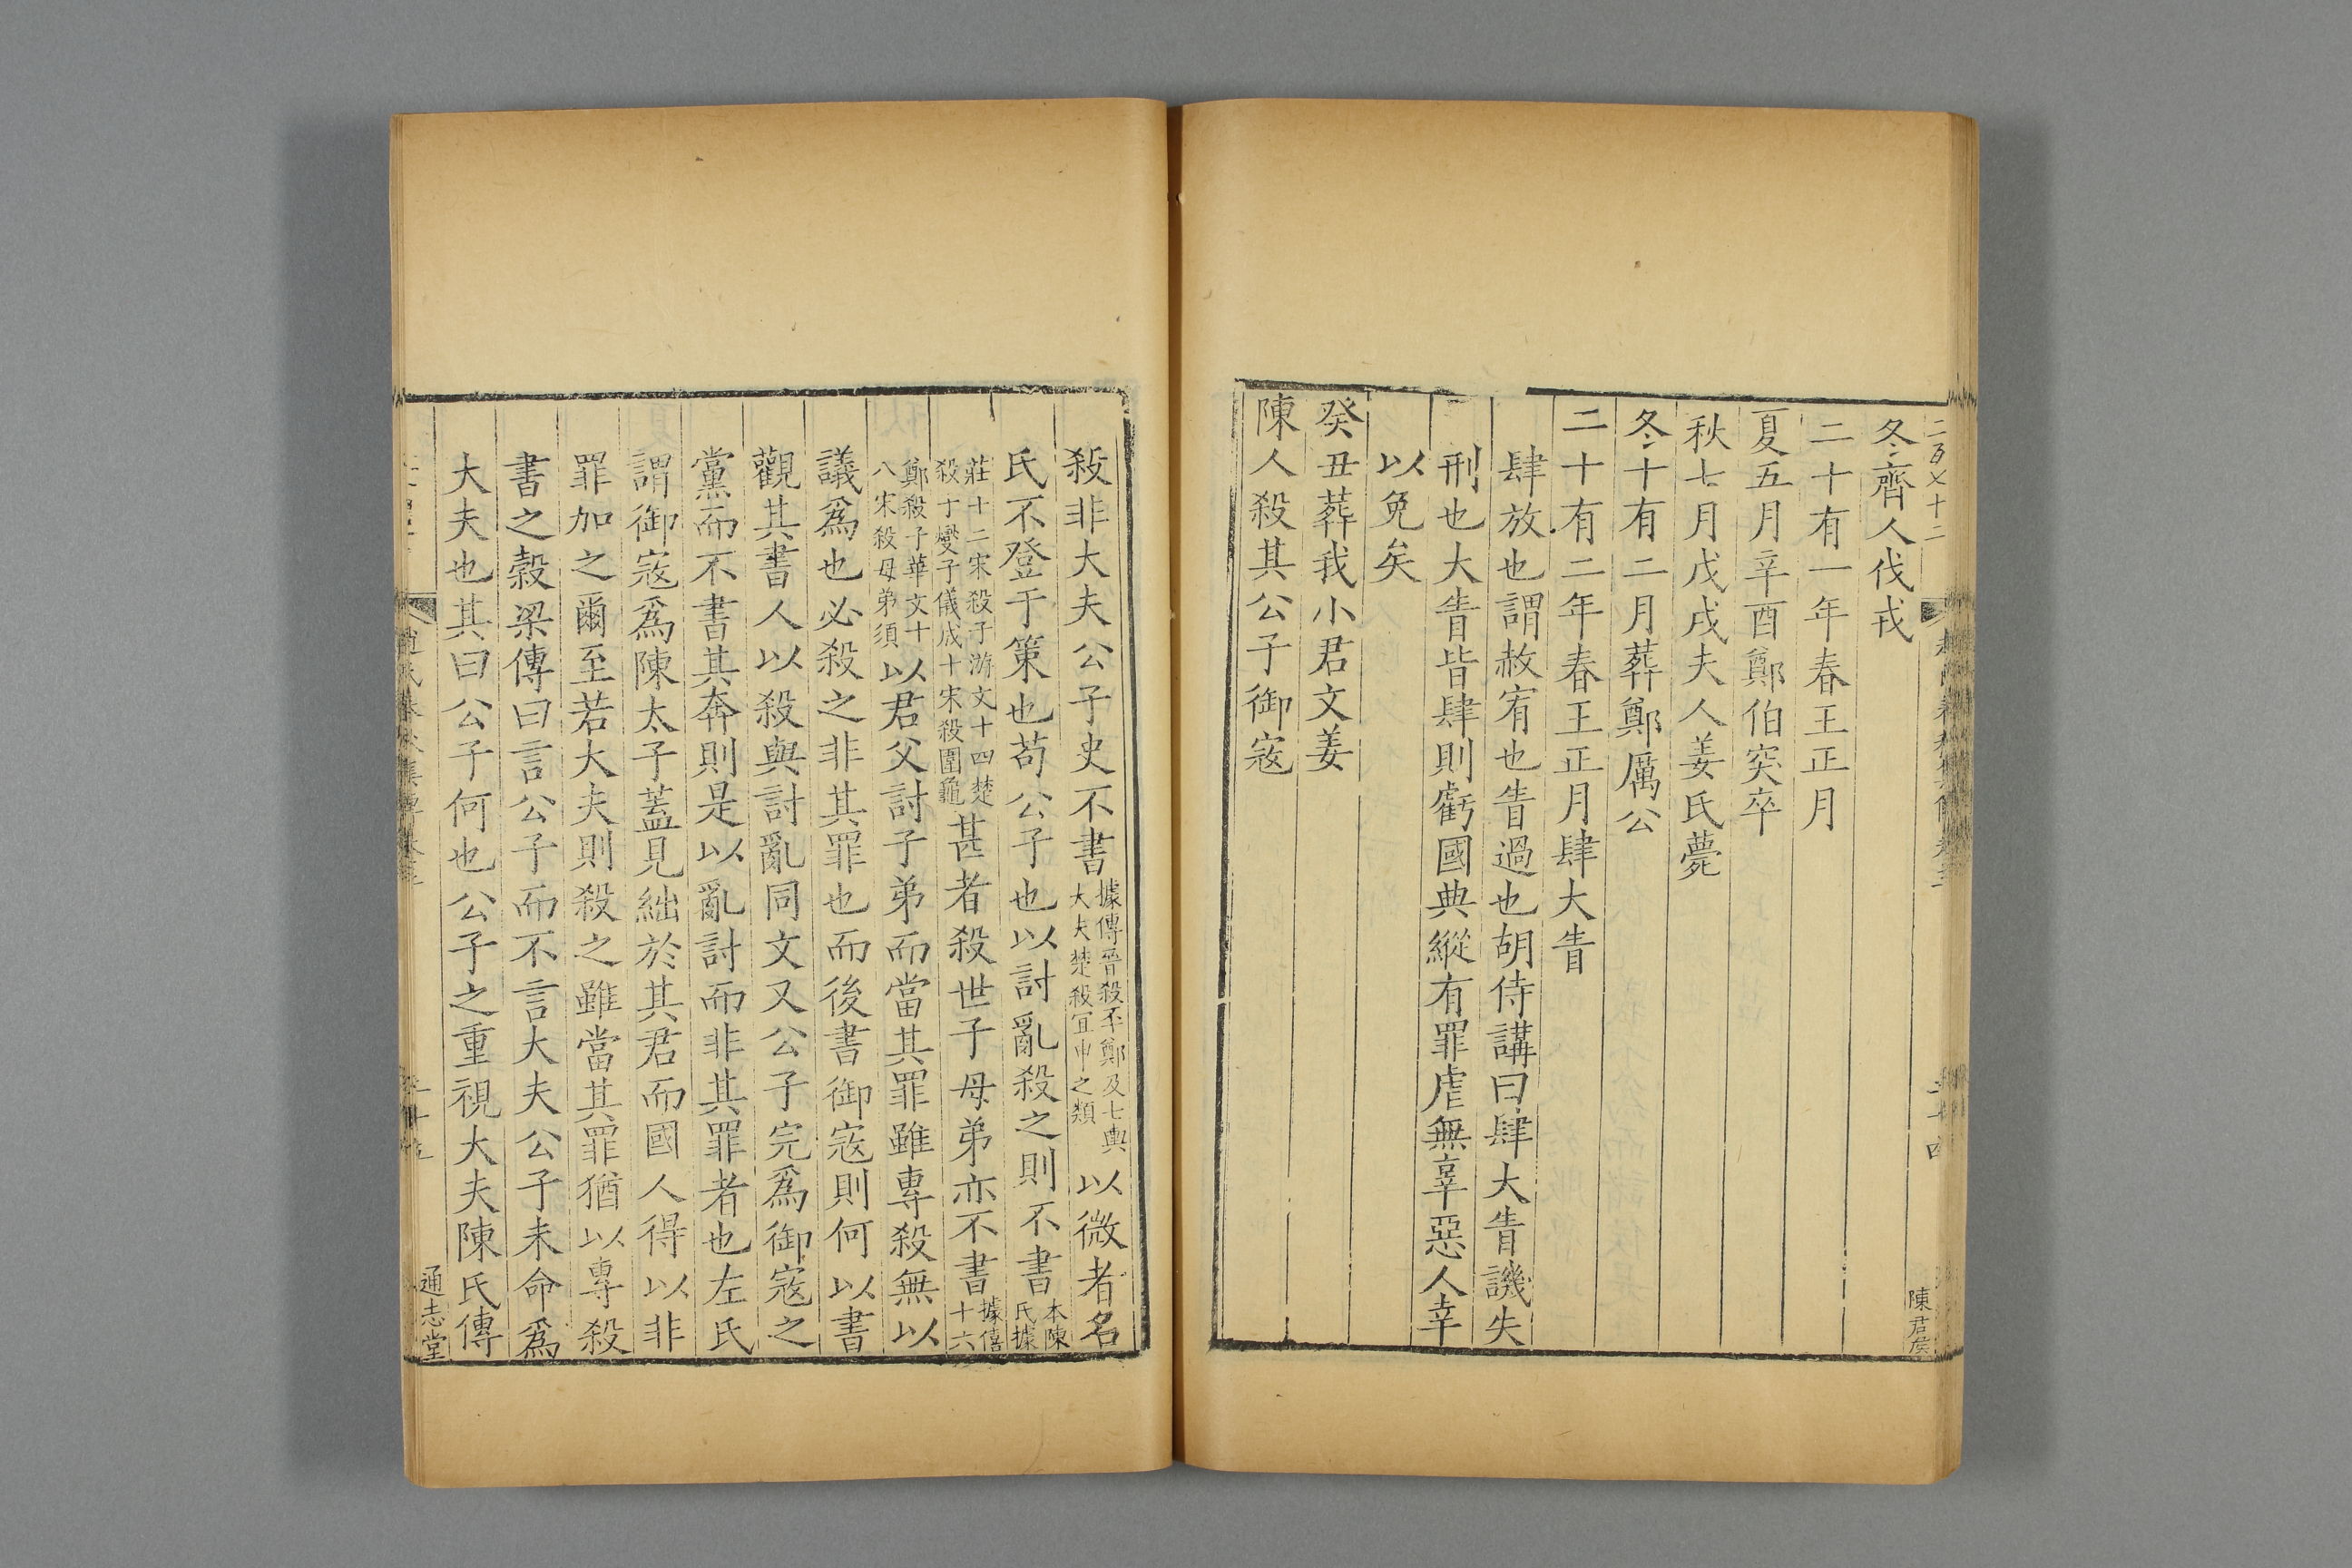 冬齊人伐戎
二十有一年春王正月
夏五月辛酉鄭伯突卒
秋七月戊戌夫人姜氏薨
冬十有二月葬鄭厲公
二十有二年春王正月肆大眚
肆放也謂赦宥也眚過也胡侍講曰肆大眚譏失
刑也大眚皆肆則虧國典縱有罪虐無辜惡人幸
以免矣
癸丑葬我小君文姜
陳人殺其公子御寇
陳君侯
殺非大夫公子史不書據傳晉殺丕鄭及七輿大夫楚殺宜申之類以微者名
氏不登于策也苟公子也以討亂殺之則不書本陳氏據
莊十二宋殺子游文十四楚殺于爕子儀成十宋殺圍龜甚者殺世子母弟亦不書據僖十六
鄭殺子華文十八宋殺母弟須以君父討子弟而當其罪雖專殺無以
議爲也必殺之非其罪也而後書御寇則何以書
觀其書人以殺與討亂同文又公子完爲御寇之
黨而不書其奔則是以亂討而非其罪者也左氏
謂御寇爲陳太子蓋見絀於其君而國人得以非
罪加之爾至若大夫則殺之雖當其罪猶以專殺
書之穀梁傳曰言公子而不言大夫公子未命爲
大夫也其曰公子何也公子之重視大夫陳氏傳
通志堂